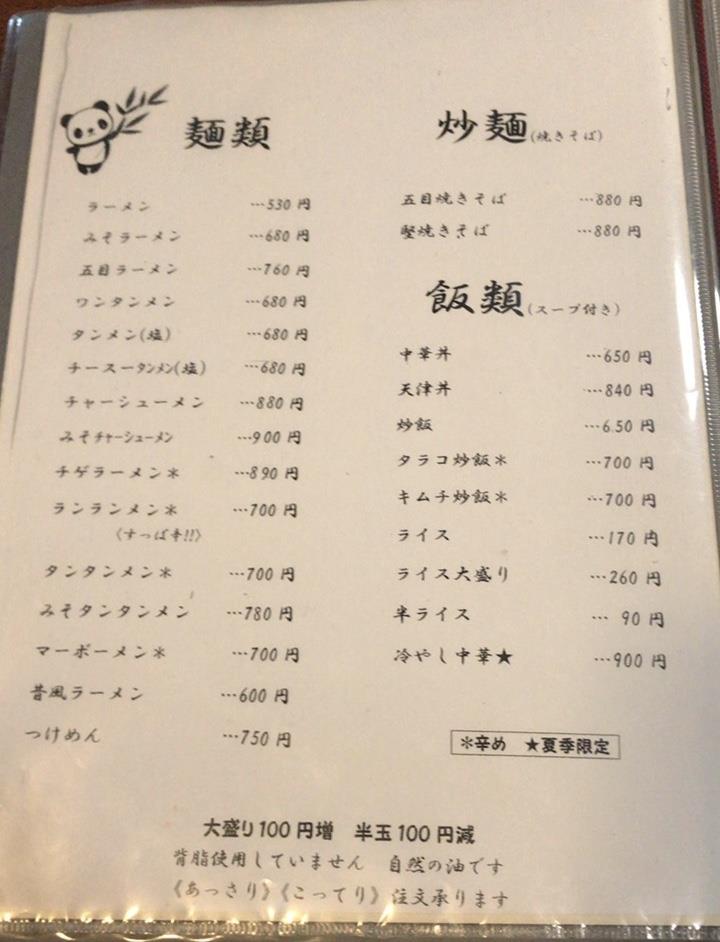 麺類
ラーメン …530 円
みそラーメン …680 円
五目ラーメン …760 円
ワンタンメン …680 円
タンメン(塩) …680 円
チースータンメン(塩) …680 円
チャーシューメン …880 円
みそチャーシューメン …900 円
チゲラーメン＊ …890 円
ランランメン＊ …700 円
〈すっぱ辛!!〉
タンタンメン＊ …700 円
みそタンタンメン …780 円
マーボーメン＊ …700 円
昔風ラーメン …600 円
つけめん …750 円
炒麺(焼きそば)
五目焼きそば …880 円
堅焼きそば …880 円
飯類(スープ付き)
中華丼 …650 円
天津丼 …840 円
炒飯 …650 円
タラコ炒飯＊ …700 円
キムチ炒飯＊ …700 円
ライス …170 円
ライス大盛り …260 円
半ライス … 90 円
冷やし中華★ …900 円
＊辛め ★夏季限定
大盛り100 円増 半玉100 円減
背脂使用していません 自然の油です
《あっさり》《こってり》注文承ります